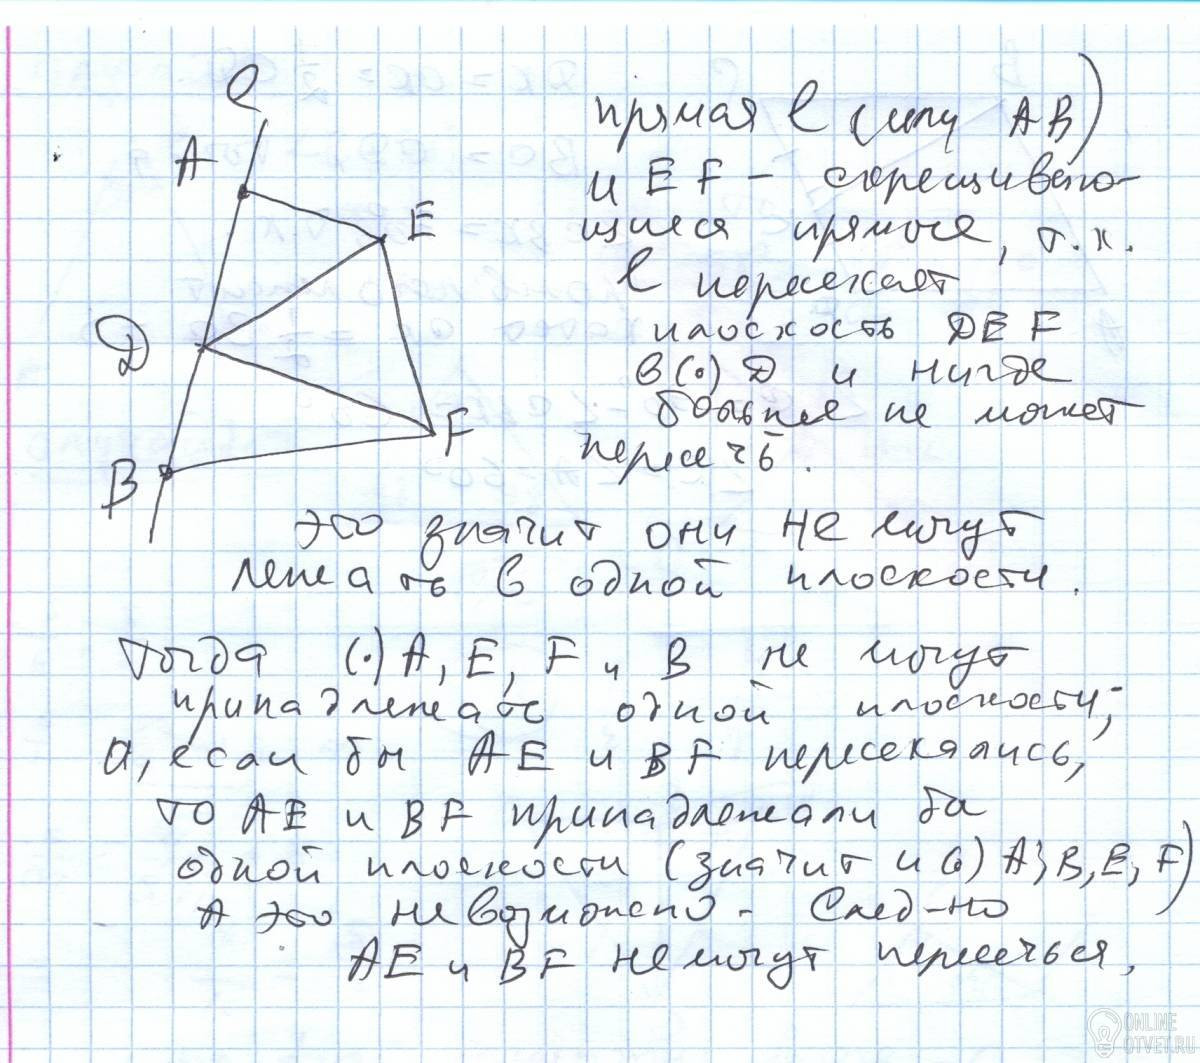 ℓ
A
E
D
F
B
прямая ℓ (или AB)
и EF – скрещиваю-
щиеся прямые, т.к.
ℓ пересекает
плоскость DEF
в (·) D и нигде
больше не может
пересечь.
это значит они не могут
лежать в одной плоскости.
тогда (·) A, E, F и B не могут
принадлежать одной плоскости;
а, если бы AE и BF пересекались,
то AE и BF принадлежали бы
одной плоскости (значит и (·) A, B, E, F)
А это невозможно. След-но
AE и BF не могут пересечься.
ONLINE
OTVET.RU